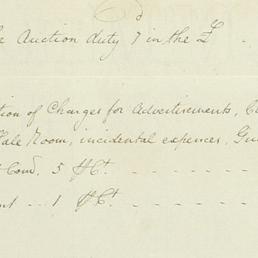 Auction duty 7 in the £
tion of Charges for Advertisements,
Sale Room, incidental expences,
Com. 5 P Ct.
nt ... 1 P Ct.